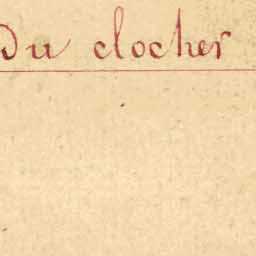 Du clocher